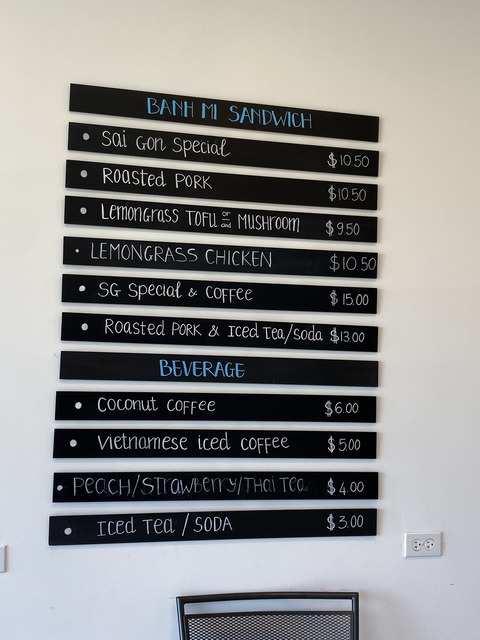 BANH MI SANDWICH
Sai Gon Special $10.50
Roasted PORK $10.50
Lemongrass TOFU or and MUSHROOM $9.50
LEMONGRASS CHICKEN $10.50
SG Special & COFFEE $15.00
Roasted PORK & Iced Tea/soda $13.00
BEVERAGE
Coconut COFFEE $6.00
Vietnamese iced coffee $5.00
PEACH/STRAWBERRY/THAI TEA $4.00
Iced Tea / SODA $3.00